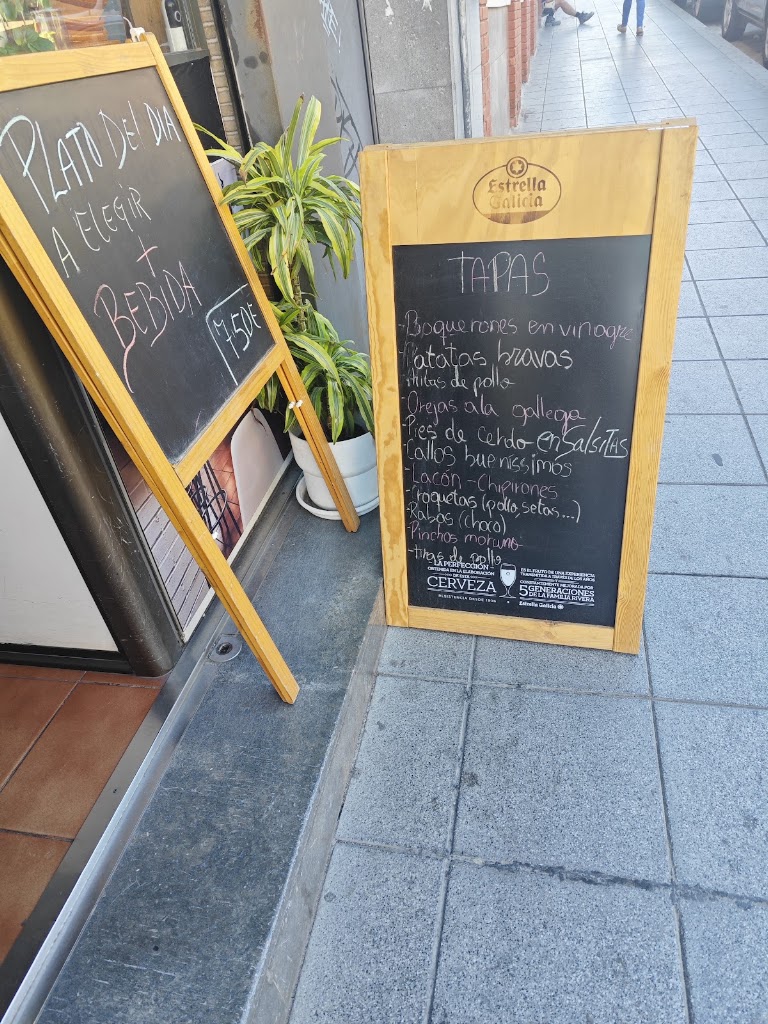 PLATO DEL DIA
A ELEGIR
+
BEBIDA
7'50€
Estrella
Galicia
TAPAS
-Boquerones en vinagre
-Patatas bravas
-Alitas de pollo
-Orejas a la gallega
-Pies de cerdo en SalsITAS
-Callos buenissimos
-Lacón - Chipirones
-Croquetas (pollo, setas...)
-Rabas (choco)
-Pinchos moruno
-tiras de pollo
LA PERFECCIÓN
OBTENIDA EN LA ELABORACIÓN
DE ESTA
CERVEZA
ES EL FRUTO DE UNA EXPERIENCIA
TRANSMITIDA A TRAVÉS DE LOS AÑOS
5 GENERACIONES
DE LA FAMILIA RIVERA
Estrella Galicia